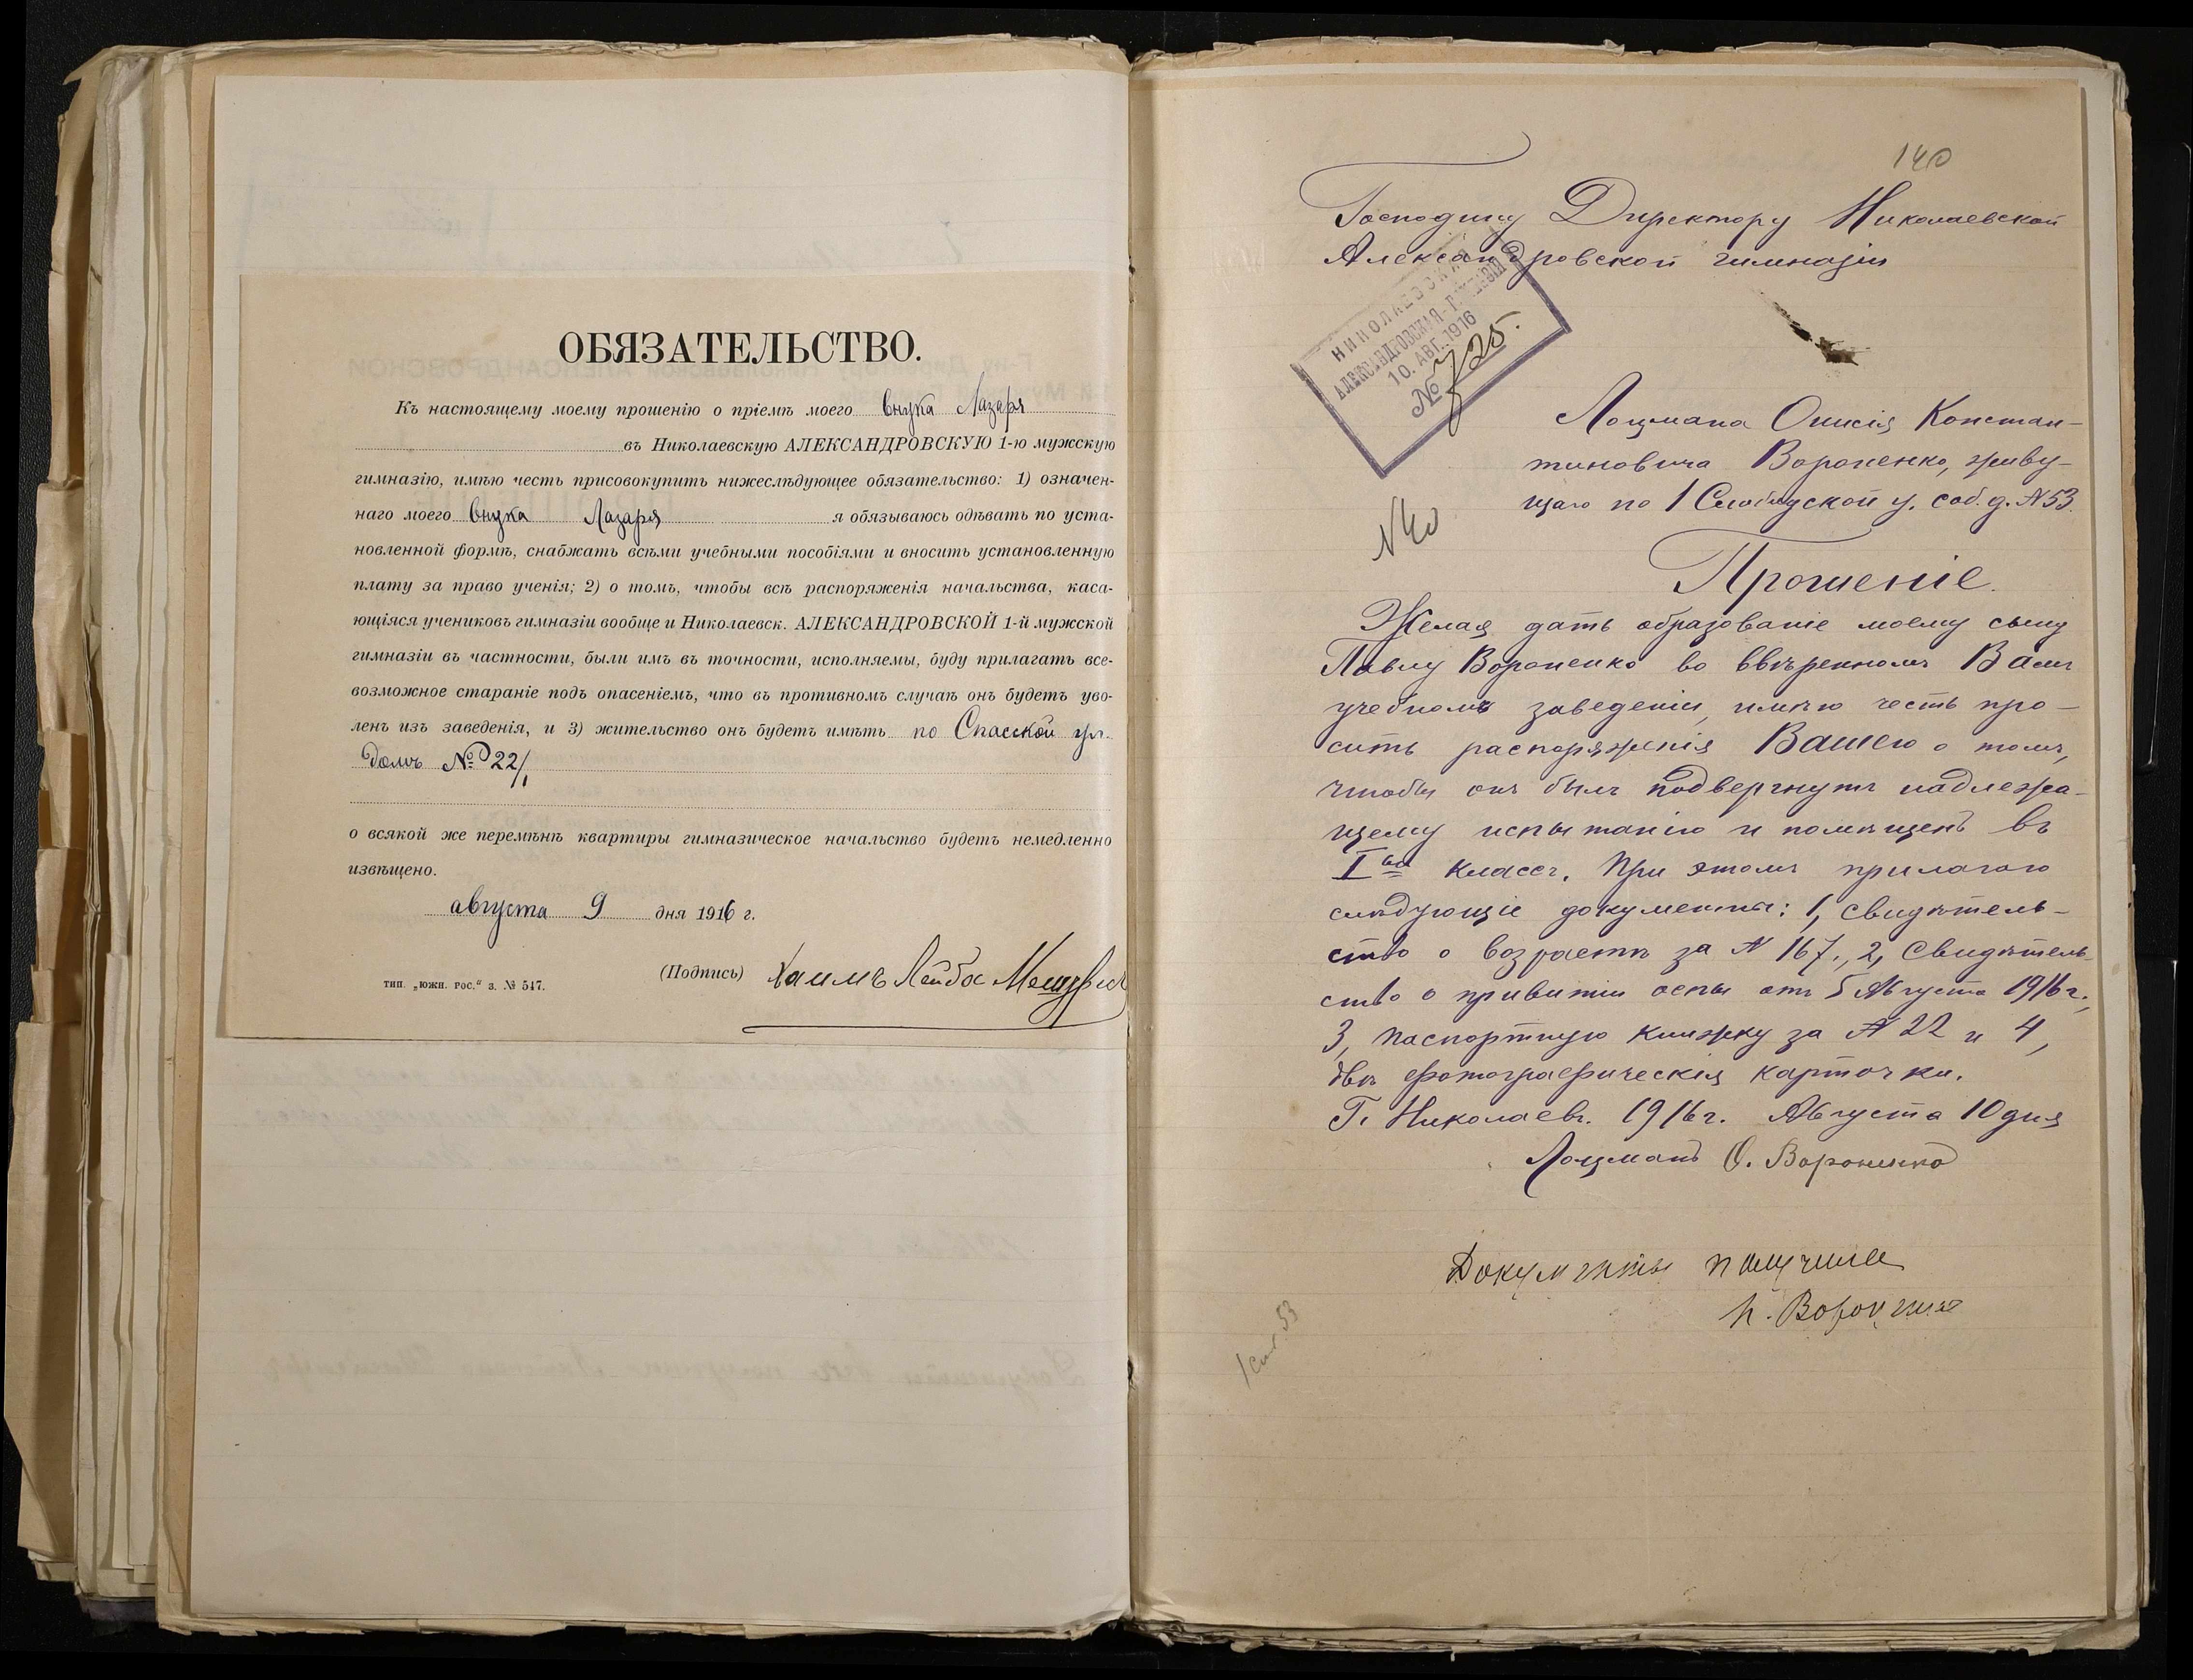 ОБЯЗАТЕЛЬСТВО.
Къ настоящему моему прошенію о пріемѣ моего внука Лазаря
въ Николаевскую АЛЕКСАНДРОВСКУЮ 1-ю мужскую
гимназію, имѣю честь присовокупить нижеслѣдующее обязательство: 1) означен-
наго моего внука Лазаря я обязываюсь одѣвать по уста-
новленной формѣ, снабжать всѣми учебными пособіями и вносить установленную
плату за право ученія; 2) о томъ, чтобы всѣ распоряженія начальства, каса-
ющіяся учениковъ гимназіи вообще и Николаевск. АЛЕКСАНДРОВСКОЙ 1-й мужской
гимназіи въ частности, были имъ въ точности, исполняемы, буду прилагать все-
возможное стараніе подъ опасеніемъ, что въ противномъ случаѣ онъ будетъ уво-
ленъ изъ заведенія, и 3) жительство онъ будетъ имѣть по Спасской ул.
домъ № 22/1
о всякой же перемѣнѣ квартиры гимназическое начальство будетъ немедленно
извѣщено.
августа 9 дня 1916 г.
(Подпись) Хаимъ Лейба
тип. „южн. рос.“ з. № 547.
140
Господину Директору Николаевской
Александровской гимназіи
НИКОЛАЕВСКАЯ
АЛЕКСАНДРОВСКАЯ ГИМНАЗІЯ
10. АВГ. 1916
№ 725.
Лоцмана Онисія Констан-
тиновича Вороненко, живу-
щаго по 1 Слободской у. соб. д. N 53.
N 40
Прошеніе.
Желая дать образованіе моему сыну
Павлу Вороненко во ввѣренномъ Вамъ
учебномъ заведеніи, имѣю честь про-
сить распоряженія Вашего о томъ,
чтобы онъ былъ подвергнутъ надлежа-
щему испытанію и помѣщенъ въ
I-ый классъ. При этомъ прилагаю
слѣдующіе документы: 1, свидѣтель-
ство о возрастѣ за N 167., 2, Свидѣтель-
ство о привитіи оспы отъ 5 Августа 1916 г.,
3, паспортную книжку за N 22 и 4,
двѣ фотографическія карточки.
Г. Николаевъ. 1916 г. Августа 10 дня
Лоцманъ О. Вороненко
Документы получила
1 Сл. 53